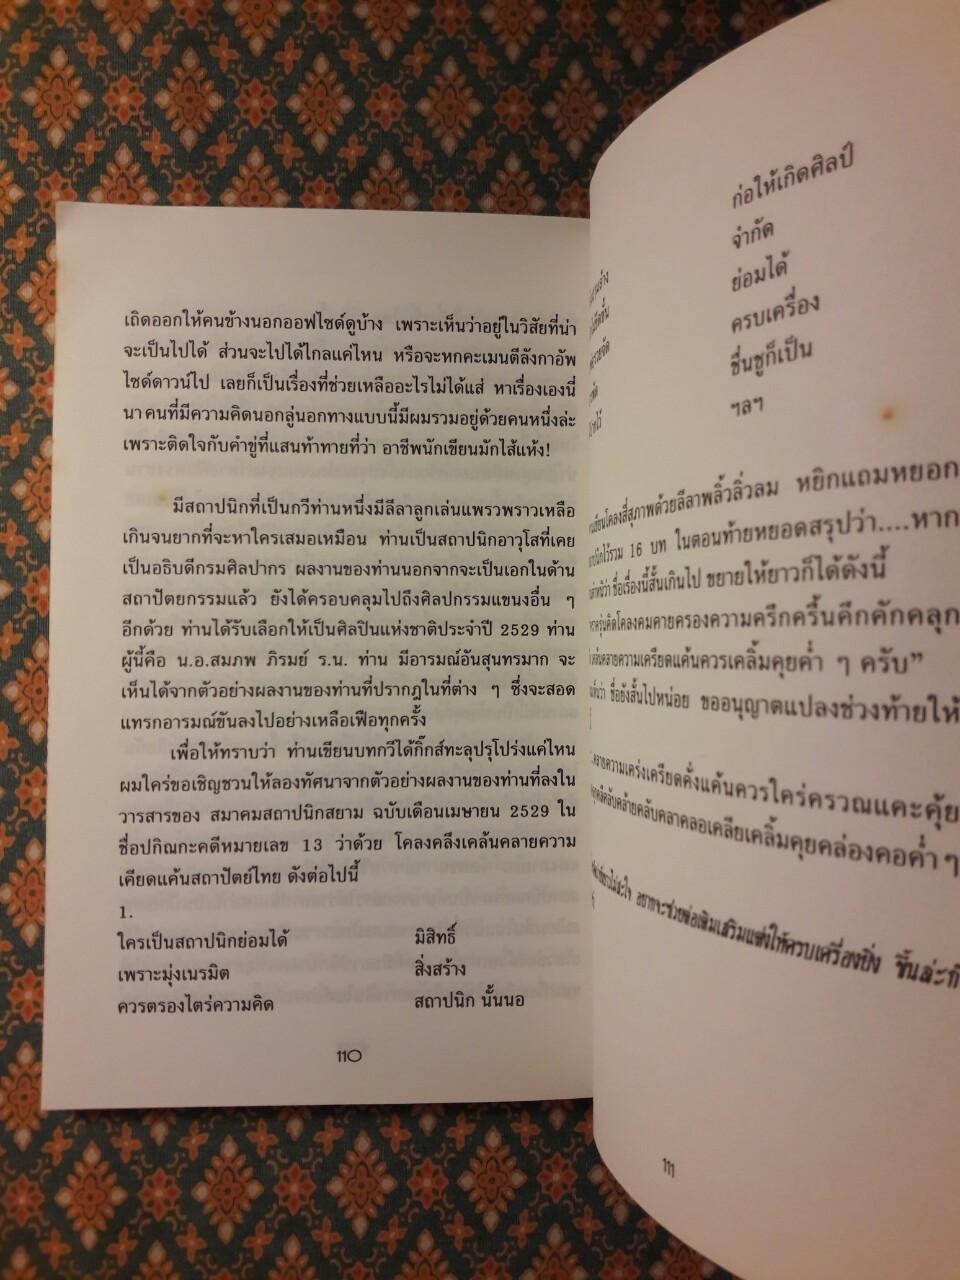 เถิดออกให้คนข้างนอกออฟไซด์ดูบ้าง เพราะเห็นว่าอยู่ในวิสัยที่น่า
จะเป็นไปได้ ส่วนจะไปได้ไกลแค่ไหน หรือจะหกคะเมนตีลังกาอัพ
ไซด์ดาวน์ไป เลยก็เป็นเรื่องที่ช่วยเหลืออะไรไม่ได้แส่ หาเรื่องเองนี่
นา คนที่มีความคิดนอกลู่นอกทางแบบนี้มีผมรวมอยู่ด้วยคนหนึ่งล่ะ
เพราะติดใจกับคำขู่ที่แสนท้าทายที่ว่า อาชีพนักเขียนมักไส้แห้ง!
มีสถาปนิกที่เป็นกวีท่านหนึ่งมีลีลาลูกเล่นแพรวพราวเหลือ
เกินจนยากที่จะหาใครเสมอเหมือน ท่านเป็นสถาปนิกอาวุโสที่เคย
เป็นอธิบดีกรมศิลปากร ผลงานของท่านนอกจากจะเป็นเอกในด้าน
สถาปัตยกรรมแล้ว ยังได้ครอบคลุมไปถึงศิลปกรรมแขนงอื่น ๆ
อีกด้วย ท่านได้รับเลือกให้เป็นศิลปินแห่งชาติประจำปี 2529 ท่าน
ผู้นี้คือ น.อ.สมภพ ภิรมย์ ร.น. ท่าน มีอารมณ์อันสุนทรมาก จะ
เห็นได้จากตัวอย่างผลงานของท่านที่ปรากฏในที่ต่าง ๆ ซึ่งจะสอด
แทรกอารมณ์ขันลงไปอย่างเหลือเฟือทุกครั้ง
เพื่อให้ทราบว่า ท่านเขียนบทกวีได้กิ๊กส์ทะลุปรุโปร่งแค่ไหน
ผมใคร่ขอเชิญชวนให้ลองทัศนาจากตัวอย่างผลงานของท่านที่ลงใน
วารสารของ สมาคมสถาปนิกสยาม ฉบับเดือนเมษายน 2529 ใน
ชื่อปกิณกะคดีหมายเลข 13 ว่าด้วย โคลงคลึงเคล้นคลายความ
เคียดแค้นสถาปัตย์ไทย ดังต่อไปนี้
1.
ใครเป็นสถาปนิกย่อมได้ มิสิทธิ์
เพราะมุ่งเนรมิต สิ่งสร้าง
ควรตรองไตร่ความคิด สถาปนิก นั้นนอ
110
ก่อให้เกิดศิลป์
จำกัด
ย่อมได้
ครบเครื่อง
ชื่นชูก็เป็น
ฯลฯ
โคลงสี่สุภาพด้วยลีลาพลิ้วลิ่วลม หยิกแถมหยอก
ไว้รวม 16 บท ในตอนท้ายหยอดสรุปว่า....หาก
ชื่อเรื่องนี้สั้นเกินไป ขยายให้ยาวก็ได้ดังนี้
คิดโคลงคมคายครองความครึกครื้นคึกคักคลุก
คลายความเครียดแค้นควรเคลิ้มคุยค่ำ ๆ ครับ”
ชื่อยังสั้นไปหน่อย ขออนุญาตแปลงช่วงท้ายให้
คลายความเคร่งเครียดคั่งแค้นควรใคร่ครวญแคะคุ้ย
คลับคล้ายคลับคลาคลอเคลียเคลิ้มคุยคล่องคอค่ำ ๆ
อยากจะช่วยต่อเติมเสริมแต่งให้ครบเครื่องปิ๋ง ขึ้นล่ะก็
111